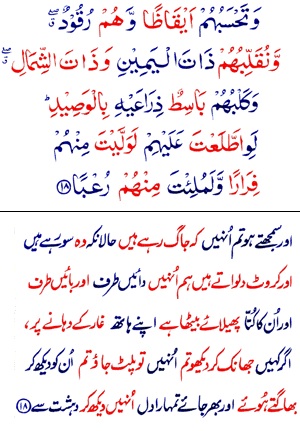 وَتَحْسَبُهُمْ اَيْقَاظًا وَّهُمْ رُقُوْدٌ ۖۗ
وَّنُقَلِّبُهُمْ ذَاتَ الْيَمِيْنِ وَذَاتَ الشِّمَالِ ۖۗ
وَكَلْبُهُمْ بَاسِطٌ ذِرَاعَيْهِ بِالْوَصِيْدِ ؕ
لَوِاطَّلَعْتَ عَلَيْهِمْ لَوَلَّيْتَ مِنْهُمْ
فِرَارًا وَّلَمُلِئْتَ مِنْهُمْ رُعْبًا ﴿۱۸﴾
اور سمجھتے ہو تم اُنہیں کہ جاگ رہے ہیں حالانکہ وہ سو رہے ہیں
اور کروٹ دلواتے ہیں ہم اُنہیں دائیں طرف اور بائیں طرف
اور اُن کا کُتّا پھیلائے بیٹھا ہے اپنے ہاتھ غار کے دہانے پر،
اگر کہیں جھانک کر دیکھو تم اُنہیں تو پلٹ جاؤ تم اُن کو دیکھ کر
بھاگتے ہُوئے اور بھر جائے تمہارا دل اُنہیں دیکھ کر دہشت سے ﴿۱۸﴾